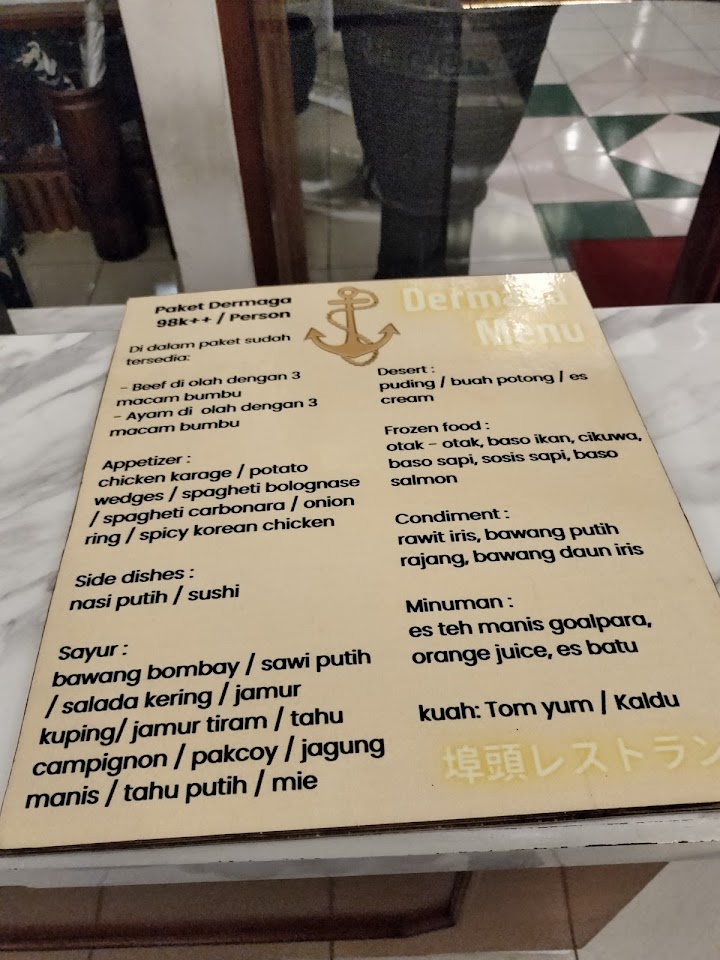 Paket Dermaga
98k++ / Person
Di dalam paket sudah
tersedia:
- Beef di olah dengan 3
macam bumbu
- Ayam di olah dengan 3
macam bumbu
Appetizer :
chicken karage / potato
wedges / spagheti bolognase
/ spagheti carbonara / onion
ring / spicy korean chicken
Side dishes :
nasi putih / sushi
Sayur :
bawang bombay / sawi putih
/ salada kering / jamur
kuping/ jamur tiram / tahu
campignon / pakcoy / jagung
manis / tahu putih / mie
Dermaga
Menu
Desert :
puding / buah potong / es
cream
Frozen food :
otak - otak, baso ikan, cikuwa,
baso sapi, sosis sapi, baso
salmon
Condiment :
rawit iris, bawang putih
rajang, bawang daun iris
Minuman :
es teh manis goalpara,
orange juice, es batu
kuah: Tom yum / Kaldu
埠頭レストラン